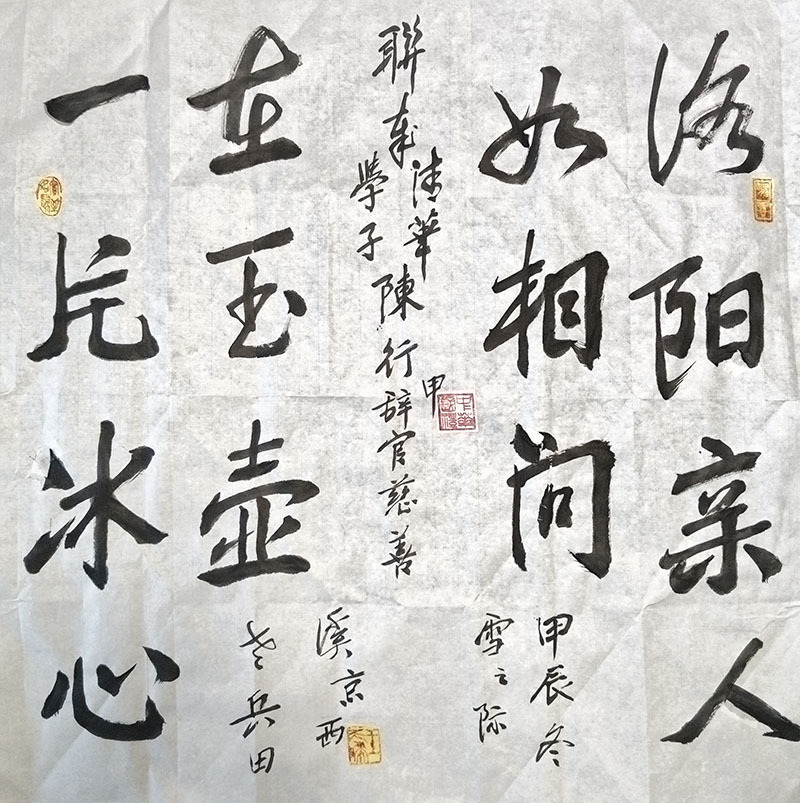 洛阳亲人
如相问
甲辰冬
雪之际
一片冰心
在玉壶
聯
清華
學子
陳行甲辞官慈善
老兵田
溪京西